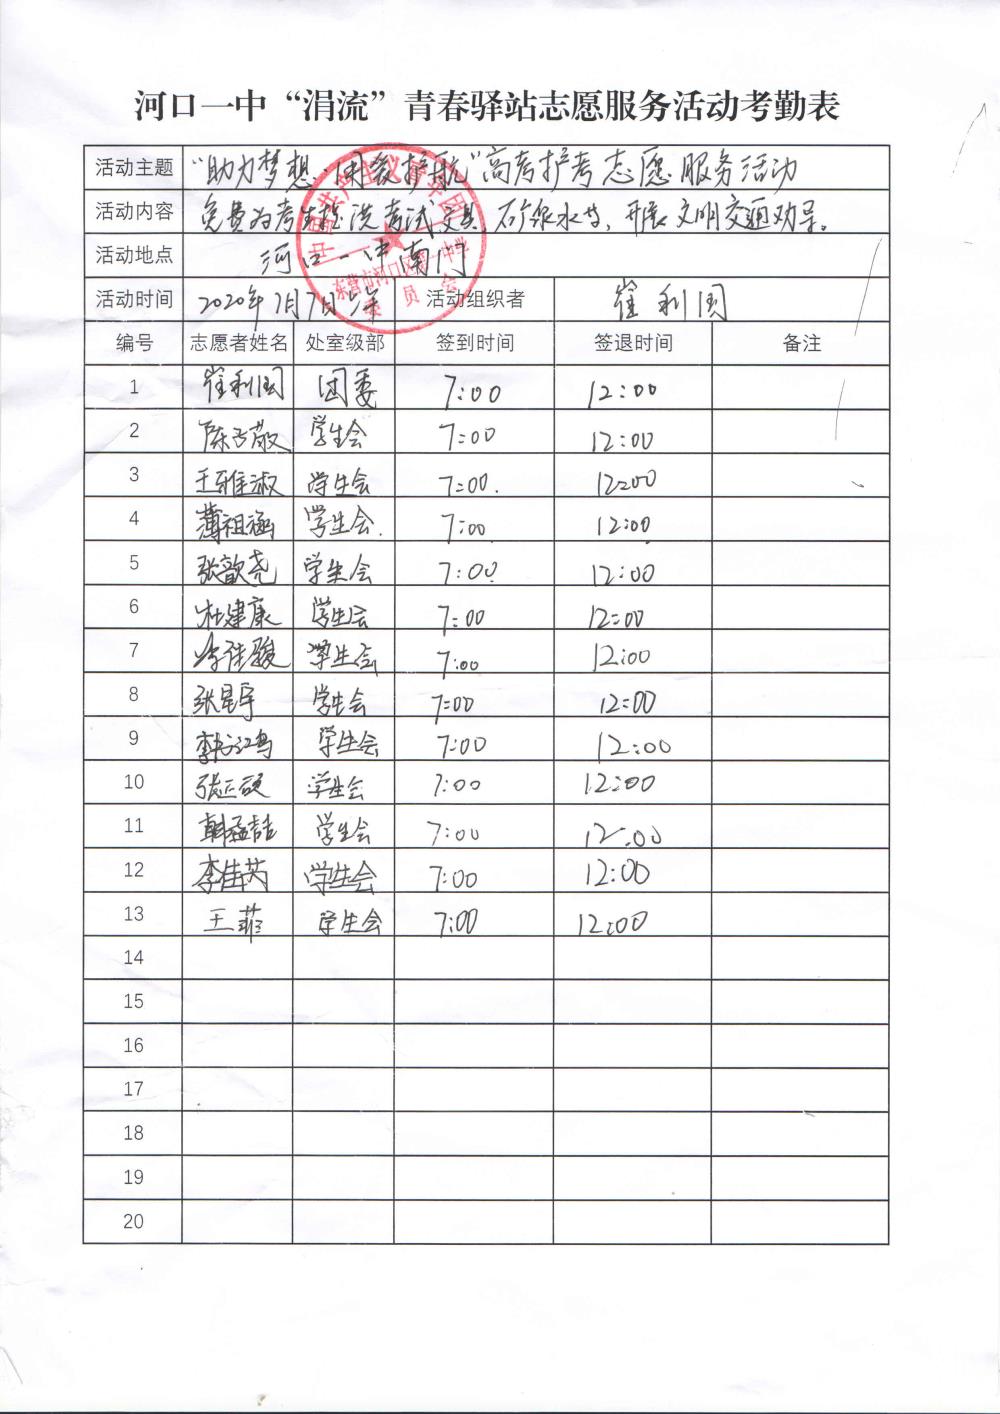 河口一中“涓流”青春驿站志愿服务活动考勤表
活动主题 “助力梦想，用爱护航”高考护考志愿服务活动
活动内容 免费为考生提供考试文具、矿泉水等，开展文明交通劝导。
活动地点 河口一中南门
活动时间 2020年7月7日 活动组织者 崔利国
编号 志愿者姓名 处室级部 签到时间 签退时间 备注
1 崔利国 团委 7:00 12:00
2 陈子敬 学生会 7:00 12:00
3 王雅淑 学生会 7:00 12:00
4 薄祖涵 学生会 7:00 12:00
5 张歆尧 学生会 7:00 12:00
6 杜建康 学生会 7:00 12:00
7 李佳骏 学生会 7:00 12:00
8 张星宇 学生会 7:00 12:00
9 学生会 7:00 12:00
10 张正硕 学生会 7:00 12:00
11 韩孟喆 学生会 7:00 12:00
12 李佳芮 学生会 7:00 12:00
13 王菲 学生会 7:00 12:00
14
15
16
17
18
19
20
中国共产主义青年团
东营市河口区第一中学
委员会